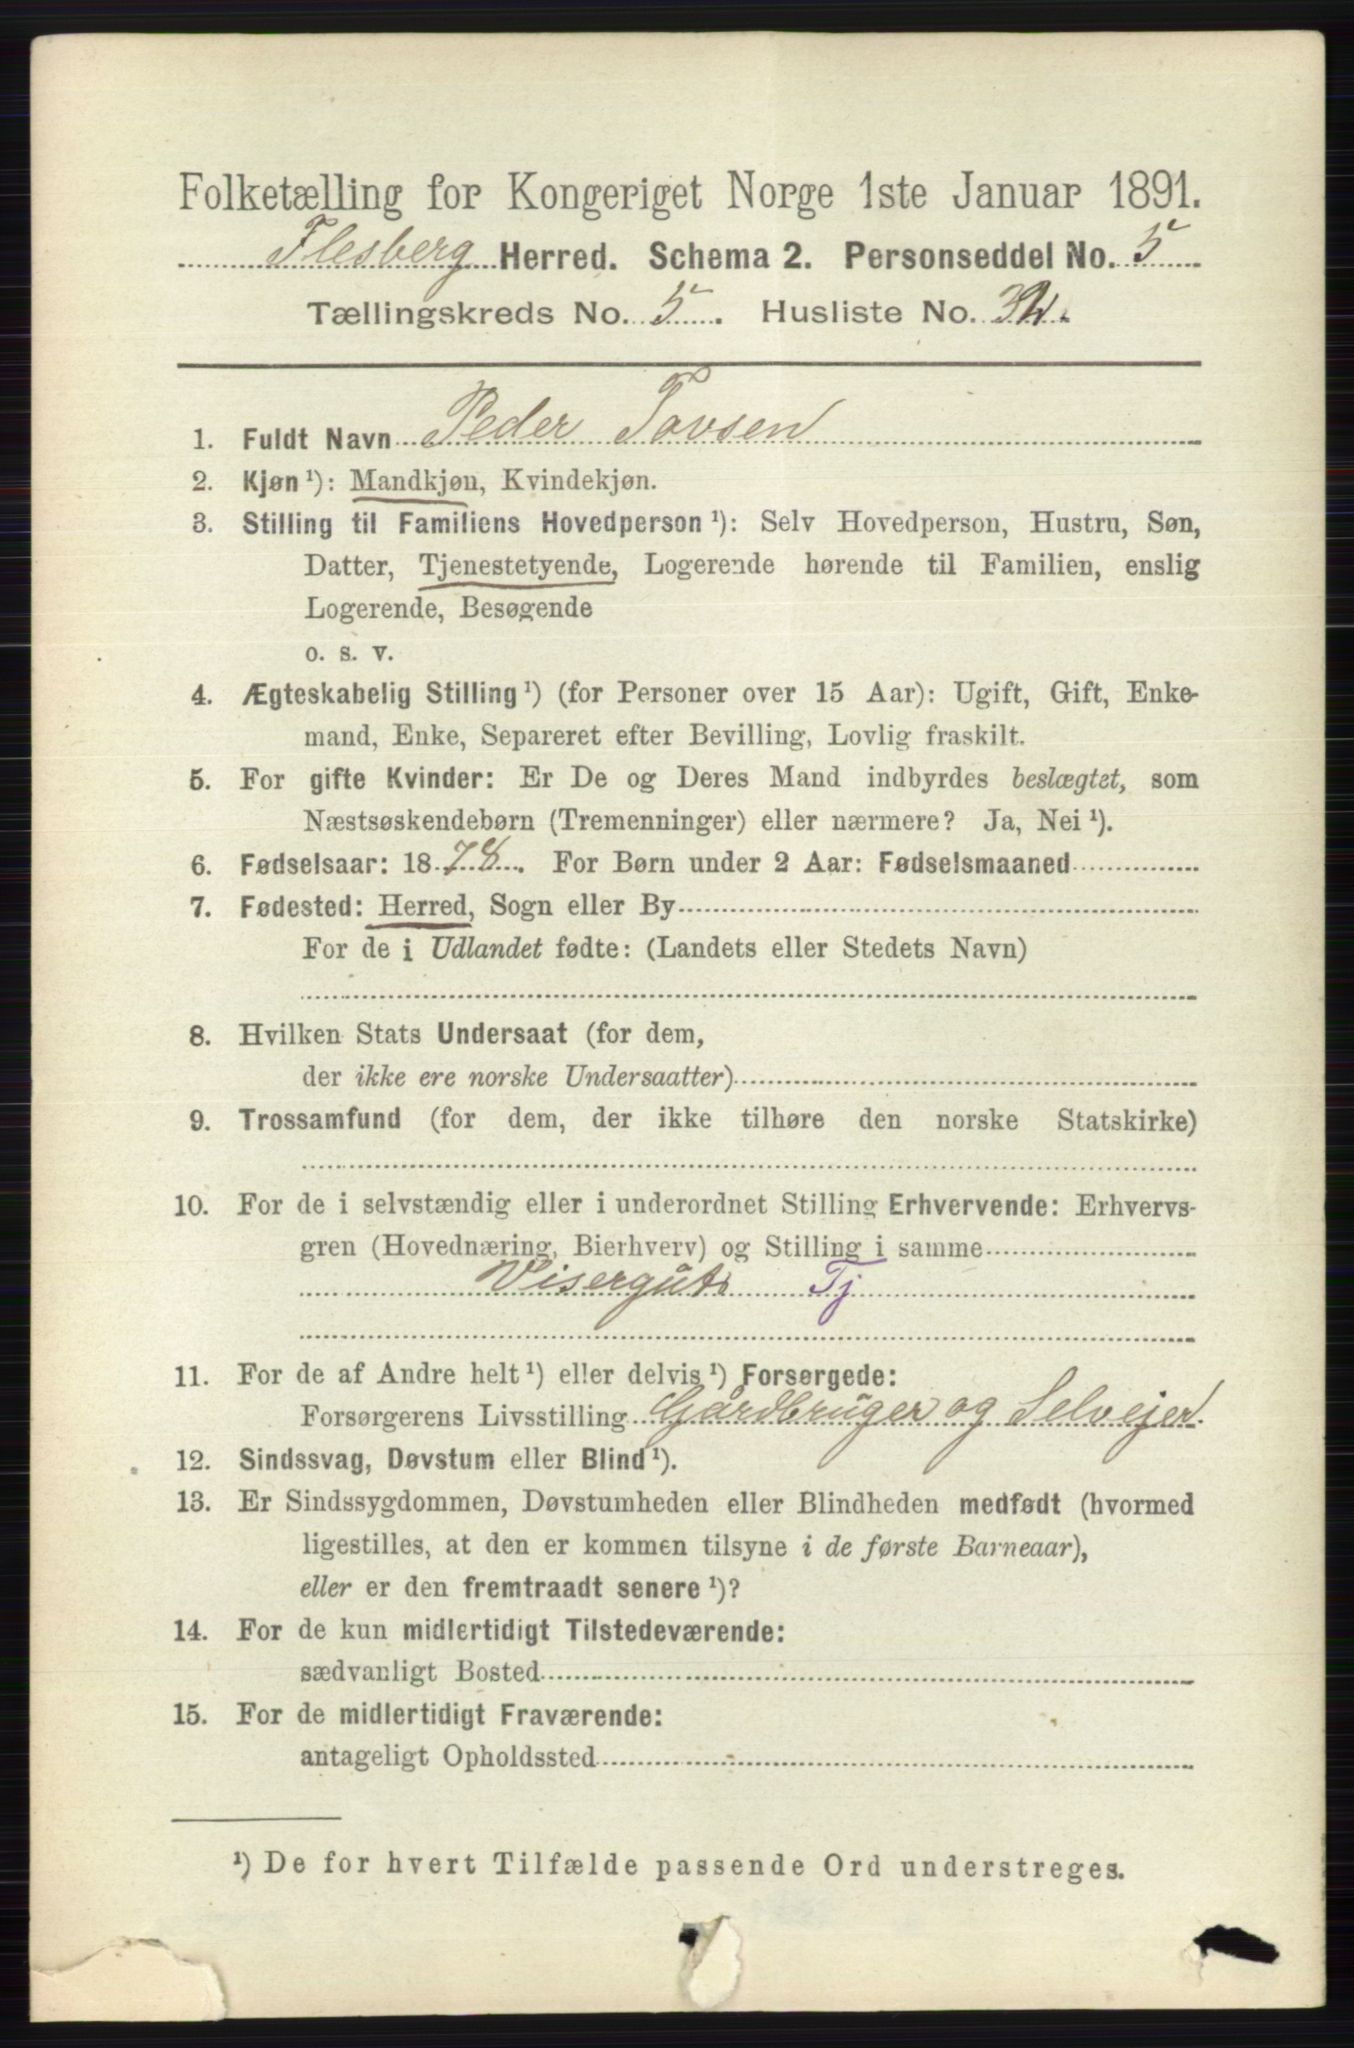 Folketælling for Kongeriget Norge 1ste Januar 1891.
Flesberg Herred. Schema 2. Personseddel No. 5
Tællingskreds No. 5. Husliste No. 32.
1. Fuldt Navn Peder Tovsen
2. Kjøn ¹): Mandkjøn, Kvindekjøn.
3. Stilling til Familiens Hovedperson ¹): Selv Hovedperson, Hustru, Søn,
Datter, Tjenestetyende, Logerende hørende til Familien, enslig
Logerende, Besøgende
o. s. v.
4. Ægteskabelig Stilling ¹) (for Personer over 15 Aar): Ugift, Gift, Enke-
mand, Enke, Separeret efter Bevilling, Lovlig fraskilt.
5. For gifte Kvinder: Er De og Deres Mand indbyrdes beslægtet, som
Næstsøskendebørn (Tremenninger) eller nærmere? Ja, Nei ¹).
6. Fødselsaar: 1878. For Børn under 2 Aar: Fødselsmaaned
7. Fødested: Herred, Sogn eller By
For de i Udlandet fødte: (Landets eller Stedets Navn)
8. Hvilken Stats Undersaat (for dem,
der ikke ere norske Undersaatter)
9. Trossamfund (for dem, der ikke tilhøre den norske Statskirke)
10. For de i selvstændig eller i underordnet Stilling Erhvervende: Erhvervs-
gren (Hovednæring, Bierhverv) og Stilling i samme
Visergut Tj
11. For de af Andre helt ¹) eller delvis ¹) Forsørgede:
Forsørgerens Livsstilling Gårdbruger og Selvejer.
12. Sindssvag, Døvstum eller Blind ¹).
13. Er Sindssygdommen, Døvstumheden eller Blindheden medfødt (hvormed
ligestilles, at den er kommen tilsyne i de første Barneaar),
eller er den fremtraadt senere ¹)?
14. For de kun midlertidigt Tilstedeværende:
sædvanligt Bosted
15. For de midlertidigt Fraværende:
antageligt Opholdssted
¹) De for hvert Tilfælde passende Ord understreges.